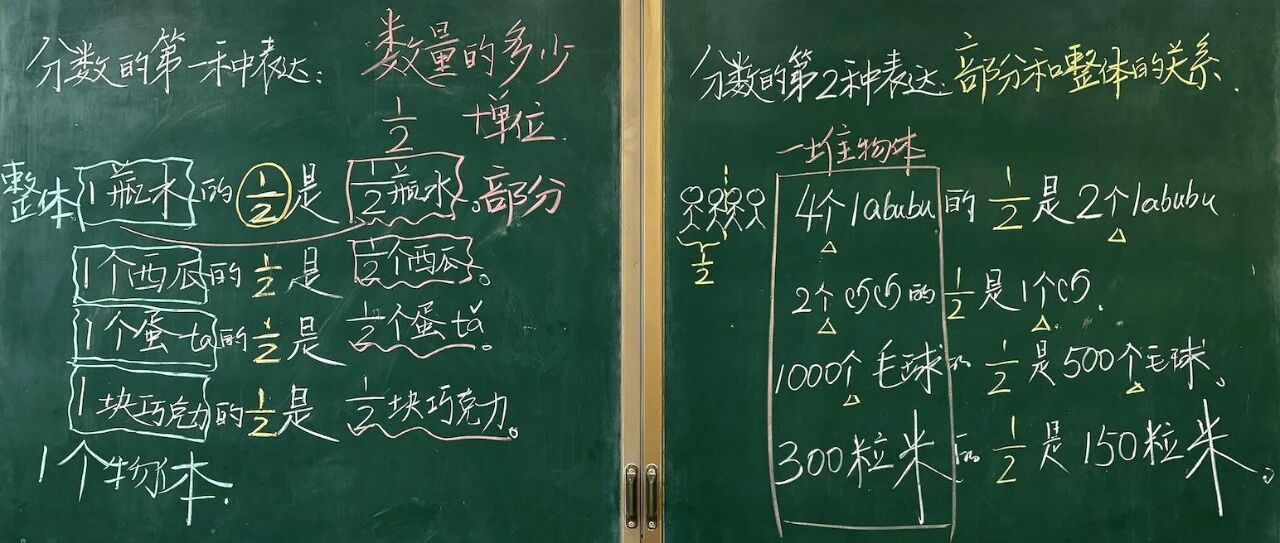 分数的第一种表达：数量的多少
1/2 +单位.
整体 1瓶水的1/2是1/2瓶水。部分
1个西瓜的1/2是1/2个西瓜。
1个蛋ta的1/2是1/2个蛋tà。
1块巧克力的1/2是1/2块巧克力。
1个物体.
分数的第2种表达:部分和整体的关系.
一堆物体
1/2
4个labubu的1/2是2个labubu
2个的1/2是1个.
1000个毛球的1/2是500个毛球。
300粒米的1/2是150粒米。